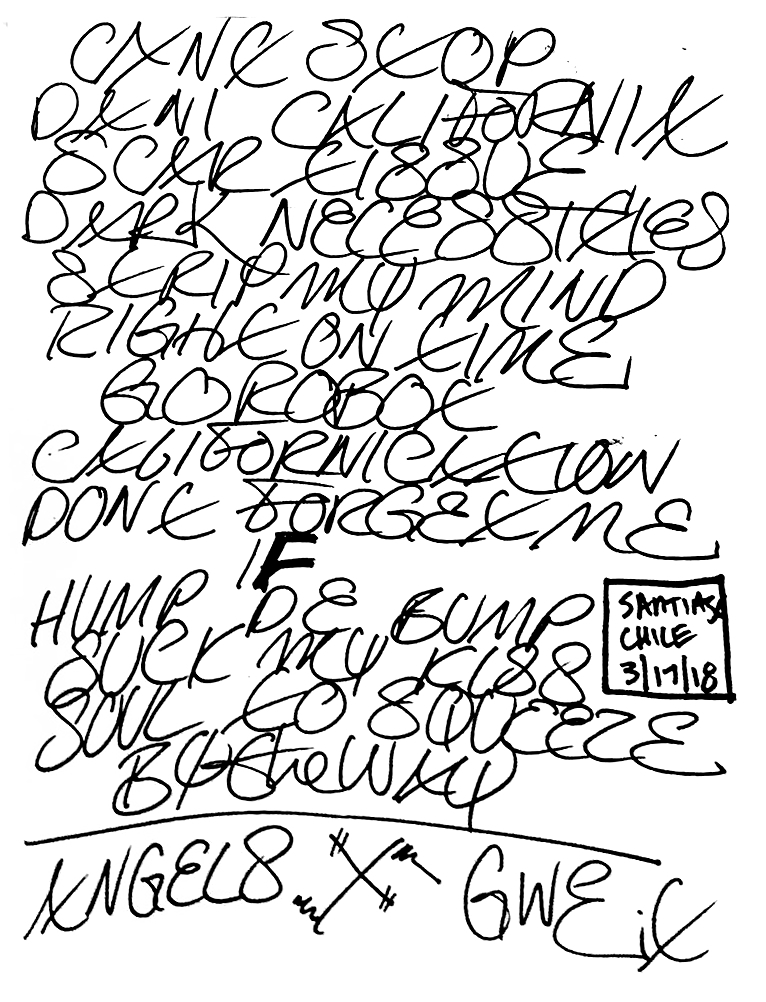 CANT STOP
DANI CALIFORNIA
SCAR TISSUE
DARK NECESSITIES
STRIP MY MIND
RIGHT ON TIME
GO ROBOT
CALIFORNICATION
DONT FORGET ME
IF
HUMP DE BUMP
SUCK MY KISS
SOUL TO SQUEEZE
BY the WAY
ANGELS
GWE iT
SANTIAGO
CHILE
3/17/18